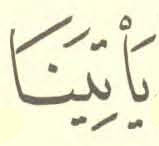 يَأْتِينَا